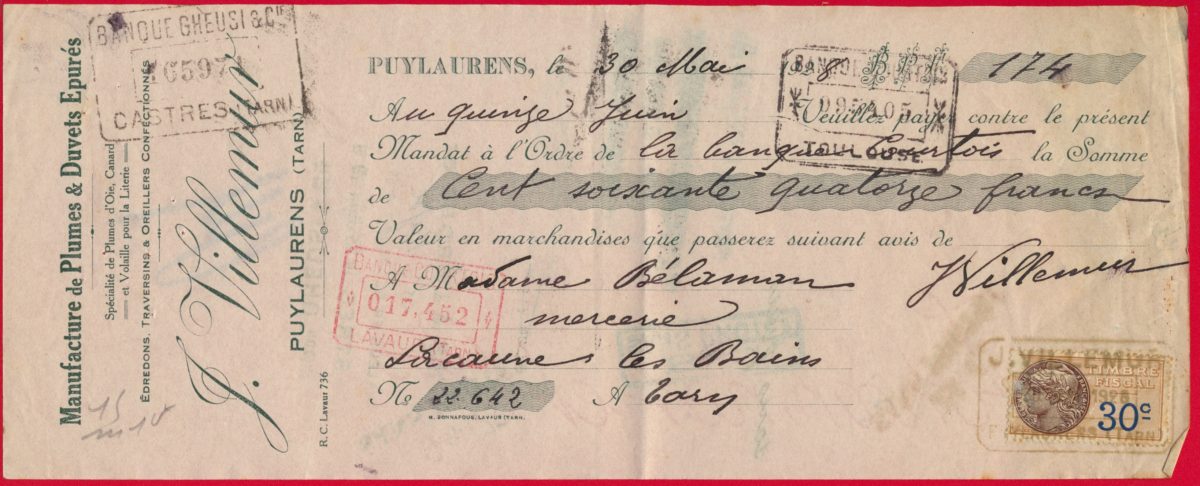 Manufacture de Plumes & Duvets Epurés
Spécialité de Plumes d'Oie, Canard
et Volaille pour la Literie
ÉDREDONS, TRAVERSINS & OREILLERS CONFECTIONNÉS
J. Villemur
PUYLAURENS (TARN)
R. C. Lavaur 736
BANQUE GHEUSI & CIE
CASTRES (TARN)
PUYLAURENS, le 30 Mai 8 B.P.F. 174
Au quinze Juin Veuillez payer contre le présent
Mandat à l'Ordre de la banque Courtois la Somme
de Cent soixante quatorze francs
Valeur en marchandises que passerez suivant avis de
A Madame Bélaman JVillemur
mercerie
Lacaune les Bains
No 22.642 A Tarn
H. BONNAFOUS, LAVAUR (TARN)
TOULOUSE
017,452
LAVAUR (TARN)
TIMBRE
FISCAL
30c